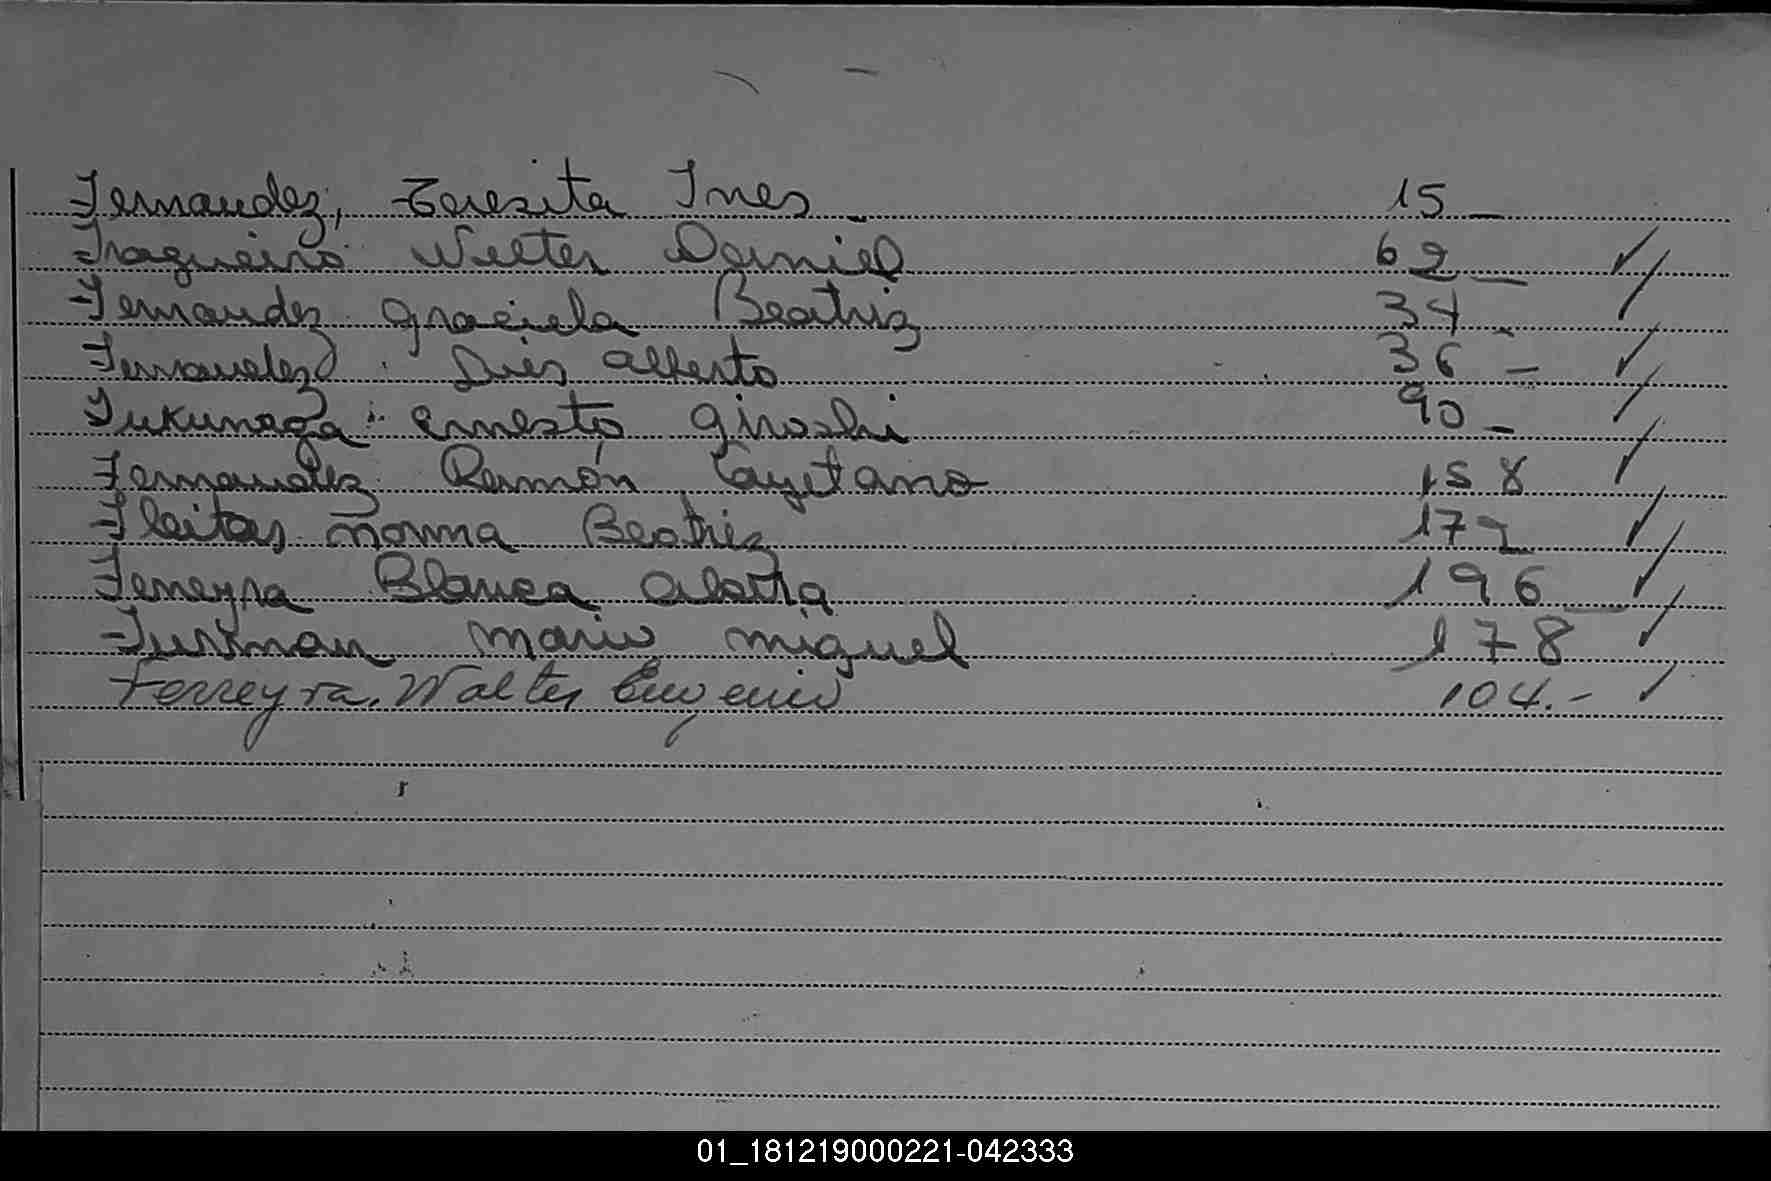 Fernandez, Teresita Ines _ 15 _
Fragueiro Walter Daniel 62 _
Fernandez Graciela Beatriz 34 _
Fernandez Luis Alberto 36 _
Fukunaga Ernesto Giroshi 90 _
Fernandez Ramón Cayetano 158
Fleitas Norma Beatriz 172
Ferreyra Blanca 196 _
Furman Mario Miguel 178
Ferreyra, Walter Eugenio 104.-
01_181219000221-042333